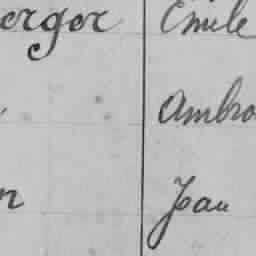 erger Emile
Ambro
n Jean